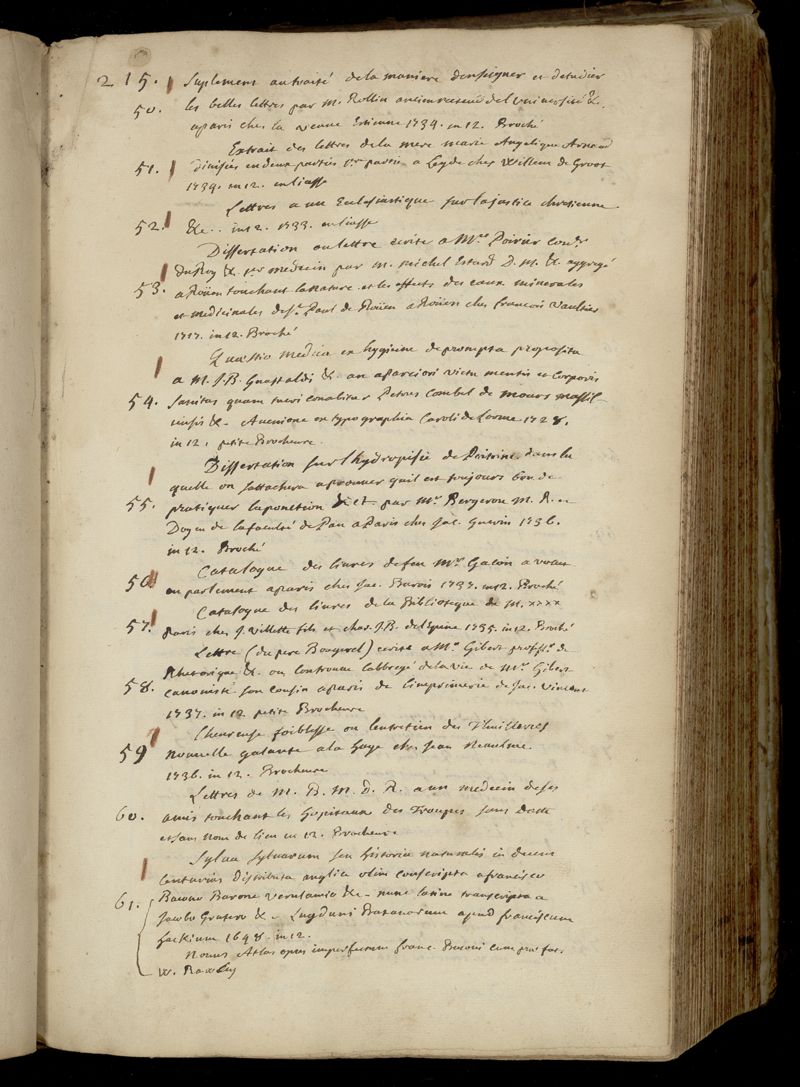 215. Suplement au traité de la maniere d'enseigner et d'etudier
50. les belles lettres par m. Rollin ancien recteur de l'université &.
a paris ches la veuve Estienne 1734. in 12. Broché
Extrait des lettres de la mere marie Angelique Arnaud
51. divisées en deux parties 1re partie a Leyde ches Willem de Groot
1734. in 12. en liasse
Lettres a un Ecclesiastique sur la justice chretienne
52. &c.. in 12. 1733. en liasse
Dissertation ou lettre ecrite a Mr. Poirier Con.er
du Roy &. 1er medecin par m. michel D. M. &. aggregé
53. a Roüen touchant la nature et les effects des eaux minerales
et medicinales de St. Paul de Roüen a Roüen ches francois Vaultier
1717. in 12. Broché
Quæstio medica ex hygieine deprompta proposita
a M. J. B. Gnastaldi &. an a parciori victu mentis et corporis
54. sanitas quam tueri conabitur Petrus Combel de mours massil-
iensis &. Avenione ex typographia Caroli de Lorme 1728.
in 12. petite Brocheure.
Dissertation sur l'hydropisie de Poitrine dans la
quelle on s'attachera a prouver qu'il est toujours bon de
55. pratiquer la ponction &ct. par Mr. Bergerou M. R. et
Doyen de la faculté de Pau a Paris ches Jac. Guerin 1736.
in 12. Broché
Catalogue des livres de feu Mr. avocat
56 au parlement a paris ches Jac. Barois 1737. in 12. Broché
Catalogue des livres de la Biblioteque de M. xxxx
57. paris ches J. Villette fils et chas. J. B. delespine 1735. in 12. Broché
Lettre (du pere Bougerel) ecrite a Mr. Gibert proff.r de
Rhetorique &. ou l'on trouve l'abbregé de la vie de Mr. Gibert
58. canoniste son cousin a paris de l'imprimerie de Jac. Vincent
1737. in 12 petite Brocheure
L'heureuse foiblesse ou l'entretien des Thuilleries
59 nouvelle galante a la Haye ches Jean Neaulme.
1736. in 12. Brocheure
Lettres de M. B. M. d. R. a un medecin de ses
60. amis touchant les Hopitaux des Troupes sans datte
et sans nom de lieu in 12. Brocheure
Sylva Sylvarum seu historia naturalis in decem
centurias distributa anglice olim conscripta a francisco
61. Bacono Barone verulamio &c. nunc latine transcripta a
Jacobo Grutero &. Lugduni Batavorum apud franciscum
hackium 1648. in 12.
Novus Atlas opus imperfectum franc. Baconi cum præfat.
W. Rawley